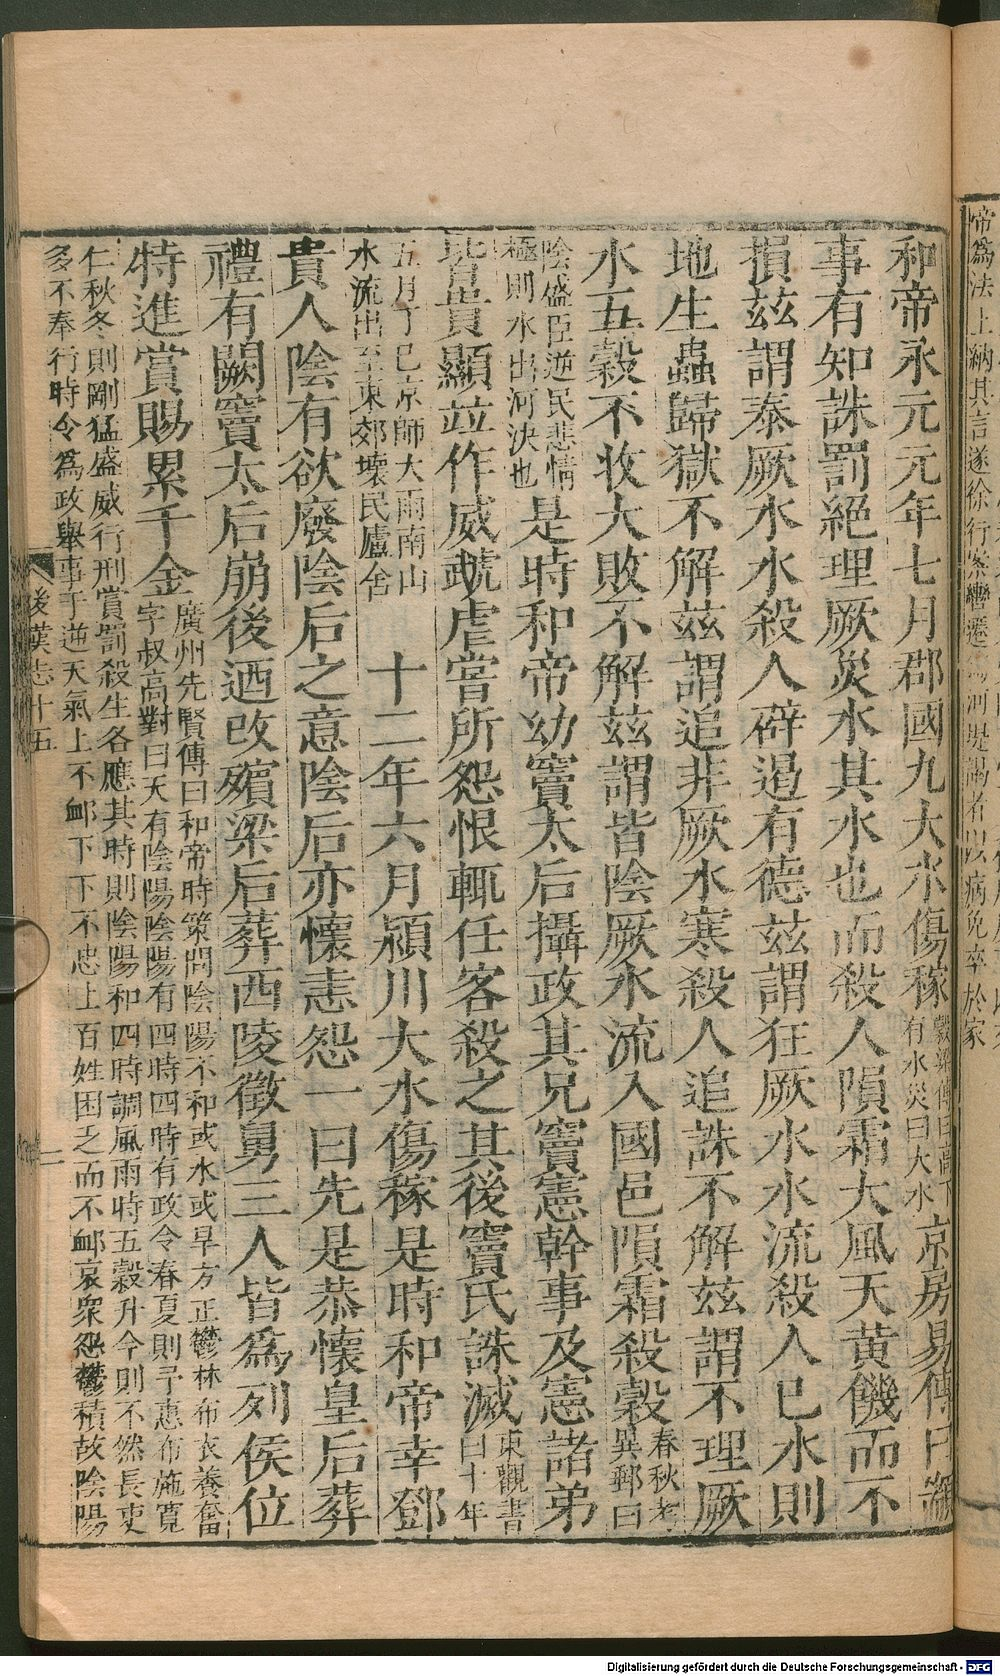 和帝永元元年七月郡國九大水傷稼穀梁傳曰高下有水災曰大水京房易傳曰顓
事有知誅罰絕理厥災水其水也而殺人隕霜大風天黃饑而不
損茲謂泰厥水水殺人辟遏有德茲謂狂厥水水流殺人已水則
地生蟲歸獄不解茲謂追非厥水寒殺人追誅不解茲謂不理厥
水五穀不收大敗不解茲謂皆陰厥水流入國邑隕霜殺穀春秋考異郵曰
陰盛臣逆民悲情極則水出河決也是時和帝幼竇太后攝政其兄竇憲幹事及憲諸弟
皆貴顯竝作威虣虐嘗所怨恨輒任客殺之其後竇氏誅滅東觀書曰十年
五月丁巳京師大雨南山水流出至東郊壞民廬舍 十二年六月潁川大水傷稼是時和帝幸鄧
貴人陰有欲廢陰后之意陰后亦懷恚怨一曰先是恭懷皇后葬
禮有闕竇太后崩後迺改殯梁后葬西陵徵舅三人皆為列侯位
特進賞賜累千金廣州先賢傳曰和帝時策問陰陽不和或水或旱方正鬱林布衣養奮字叔高對曰天有陰陽陰陽有四時四時有政令春夏則予惠布施寬
仁秋冬則剛猛盛威行刑賞罰殺生各應其時則陰陽和四時調風雨時五穀升今則不然長吏多不奉行時令為政舉事干逆天氣上不卹下下不忠上百姓困乏而不卹哀眾怨鬱積故陰陽
後漢志十五
二
帝為法上納其言遂徐行
病免卒於家
Digitalisierung gefördert durch die Deutsche Forschungsgemeinschaft - DFG